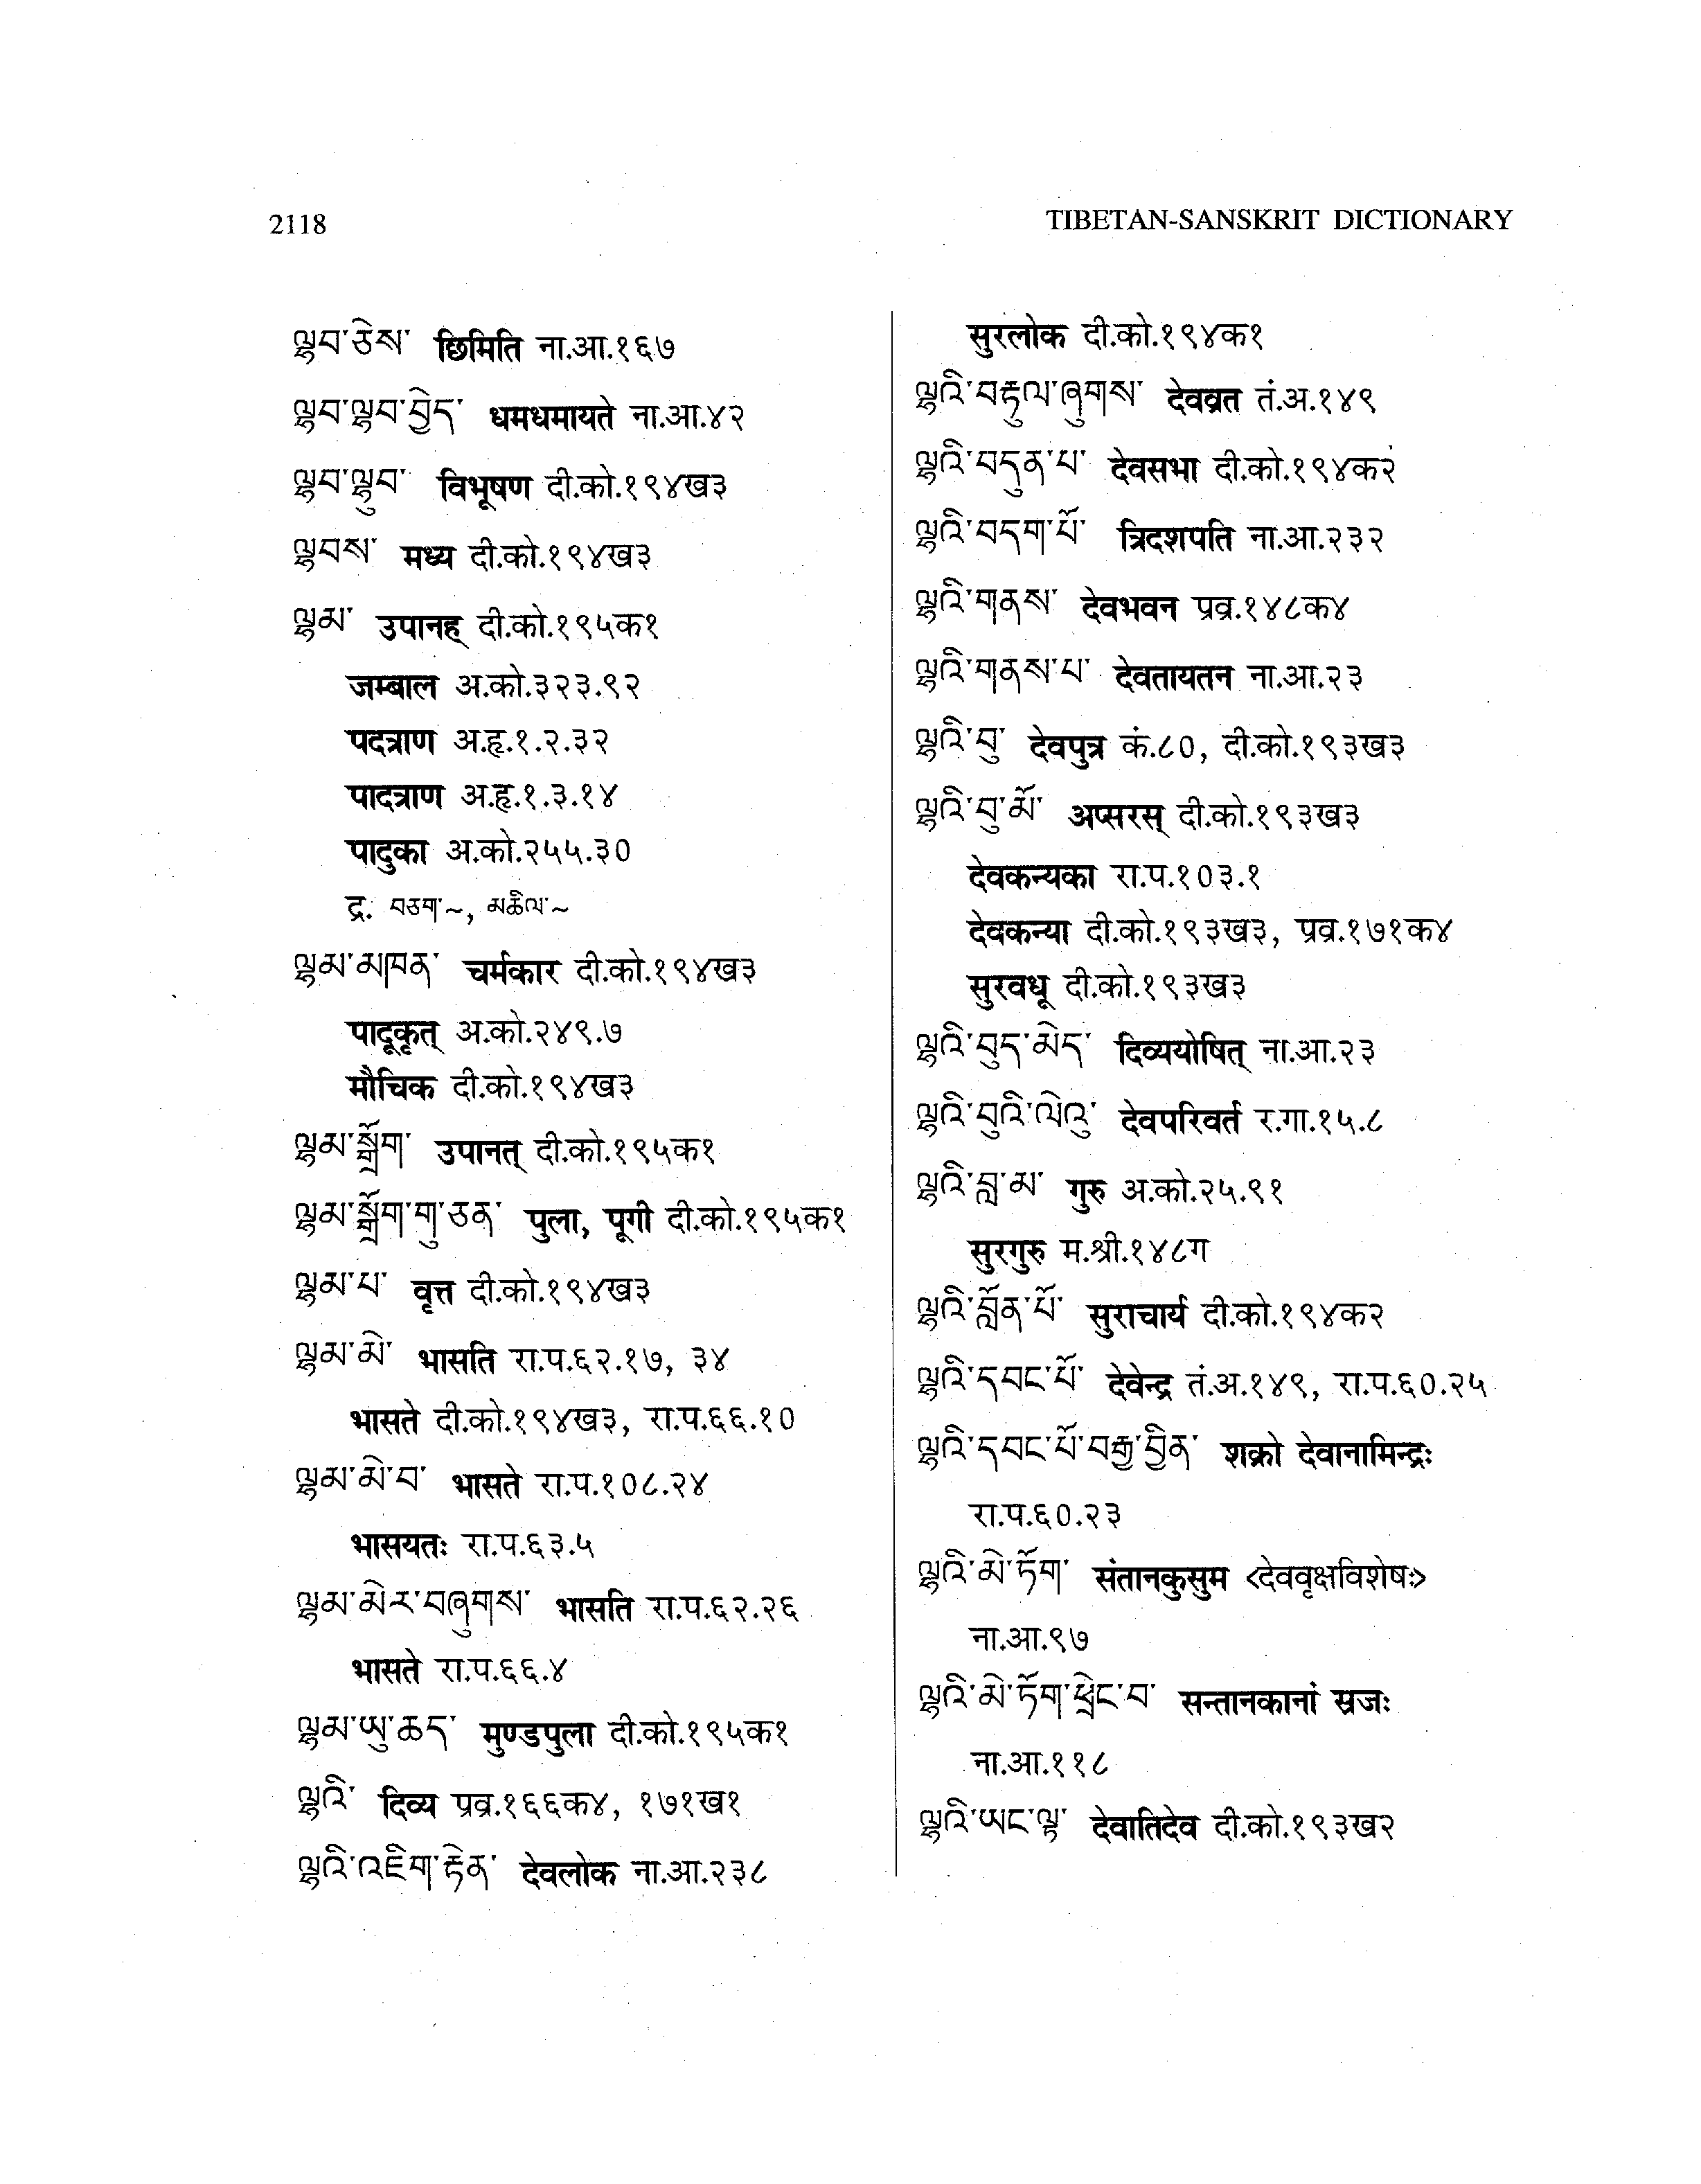 2118
TIBETAN-SANSKRIT DICTIONARY
ལྷབ་ཅེས་ छिमिति ना.आ.१६७
ལྷབ་ལྷབ་བྱེད་ धमधमायते ना.आ.४२
ལྷབ་ལྷུབ་ विभूषण दी.को.१९४ख३
ལྷབས་ मध्य दी.को.१९४ख३
ལྷམ་ उपानह् दी.को.१९५क१
जम्बाल अ.को.३२३.९२
पदत्राण अ.हृ.१.२.३२
पादत्राण अ.हृ.१.३.१४
पादुका अ.को.२५५.३०
द्र. བཅག་~, མཆིལ་~
ལྷམ་མཁན་ चर्मकार दी.को.१९४ख३
पादूकृत् अ.को.२४९.७
मौचिक दी.को.१९४ख३
ལྷམ་སྒྲོག་ उपानत् दी.को.१९५क१
ལྷམ་སྒྲོག་གུ་ཅན་ पुला, पूगी दी.को.१९५क१
ལྷམ་པ་ वृत्त दी.को.१९४ख३
ལྷམ་མེ་ भासति रा.प.६२.१७, ३४
भासते दी.को.१९४ख३, रा.प.६६.१०
ལྷམ་མེ་བ་ भासते रा.प.१०८.२४
भासयतः रा.प.६३.५
ལྷམ་མེར་བཞུགས་ भासति रा.प.६२.२६
भासते रा.प.६६.४
ལྷམ་ཡུ་ཆད་ मुण्डपुला दी.को.१९५क१
ལྷའི་ दिव्य प्रव्र.१६६क४, १७१ख१
ལྷའི་འཇིག་རྟེན་ देवलोक ना.आ.२३८
सुरलोक दी.को.१९४क१
ལྷའི་བརྟུལ་ཞུགས་ देवव्रत तं.अ.१४९
ལྷའི་བདུན་པ་ देवसभा दी.को.१९४क२
ལྷའི་བདག་པོ་ त्रिदशपति ना.आ.२३२
ལྷའི་གནས་ देवभवन प्रव्र.१४८क४
ལྷའི་གནས་པ་ देवतायतन ना.आ.२३
ལྷའི་བུ་ देवपुत्र कं.८०, दी.को.१९३ख३
ལྷའི་བུ་མོ་ अप्सरस् दी.को.१९३ख३
देवकन्यका रा.प.१०३.१
देवकन्या दी.को.१९३ख३, प्रव्र.१७१क४
सुरवधू दी.को.१९३ख३
ལྷའི་བུད་མེད་ दिव्ययोषित् ना.आ.२३
ལྷའི་བུའི་ལེའུ་ देवपरिवर्त र.गा.१५.८
ལྷའི་བླ་མ་ गुरु अ.को.२५.९१
सुरगुरु म.श्री.१४८ग
ལྷའི་བློན་པོ་ सुराचार्य दी.को.१९४क२
ལྷའི་དབང་པོ་ देवेन्द्र तं.अ.१४९, रा.प.६०.२५
ལྷའི་དབང་པོ་བརྒྱ་བྱིན་ शक्रो देवानामिन्द्रः
रा.प.६०.२३
ལྷའི་མེ་ཏོག་ संतानकुसुम <देववृक्षविशेषः>
ना.आ.९७
ལྷའི་མེ་ཏོག་ཕྲེང་བ་ सन्तानकानां स्रजः
ना.आ.११८
ལྷའི་ཡང་ལྷ་ देवातिदेव दी.को.१९३ख२